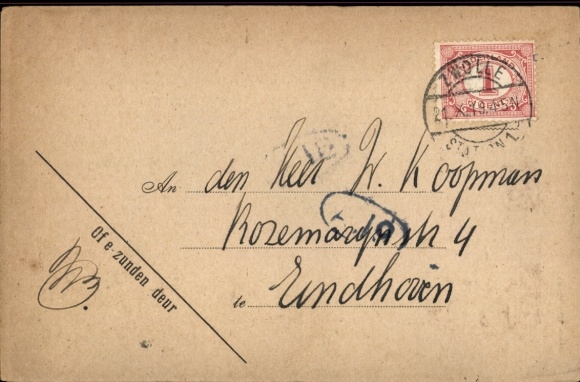 ZWOLLE
1
STATION
An den Heer W. Koopmans
Rozemarijnstr 4
te Eindhoven
Of e-zunden deur